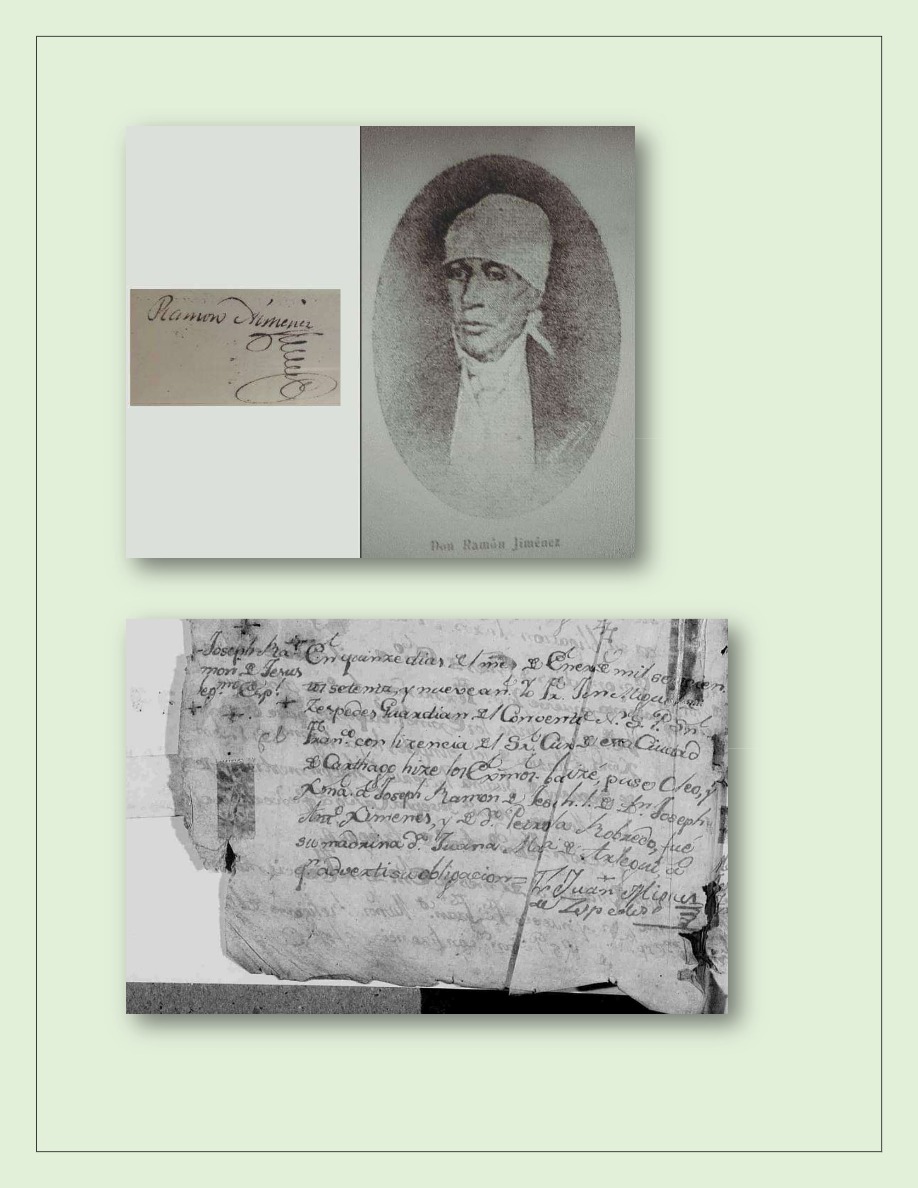 Ramon Ximenez
Don Ramón Jiménez
Joseph Ra-
mon de Jesus
legmo Esp.l
En quinze dias del mes de Enero de mil setecen
tos setenta, y nueve an.s Yo Fr. Juan Miguel
Zespedes Guardian del Convento N. S. P. Sn.
Fran.co con lizencia del Sr. Cura de esta Ciudad
de Carthago hize los Exmos. baize, puse Oleo, y
Xma. a Joseph Ramon de Jesus h. l. de Dn. Joseph
Ant.o Ximenes, y de d.a Petrona Robredo, fué
su madrina d.a Juana Ma. de Arlegui, a
q. advertí su obligacion=
Fr. Juan Miguel
de Zespedes